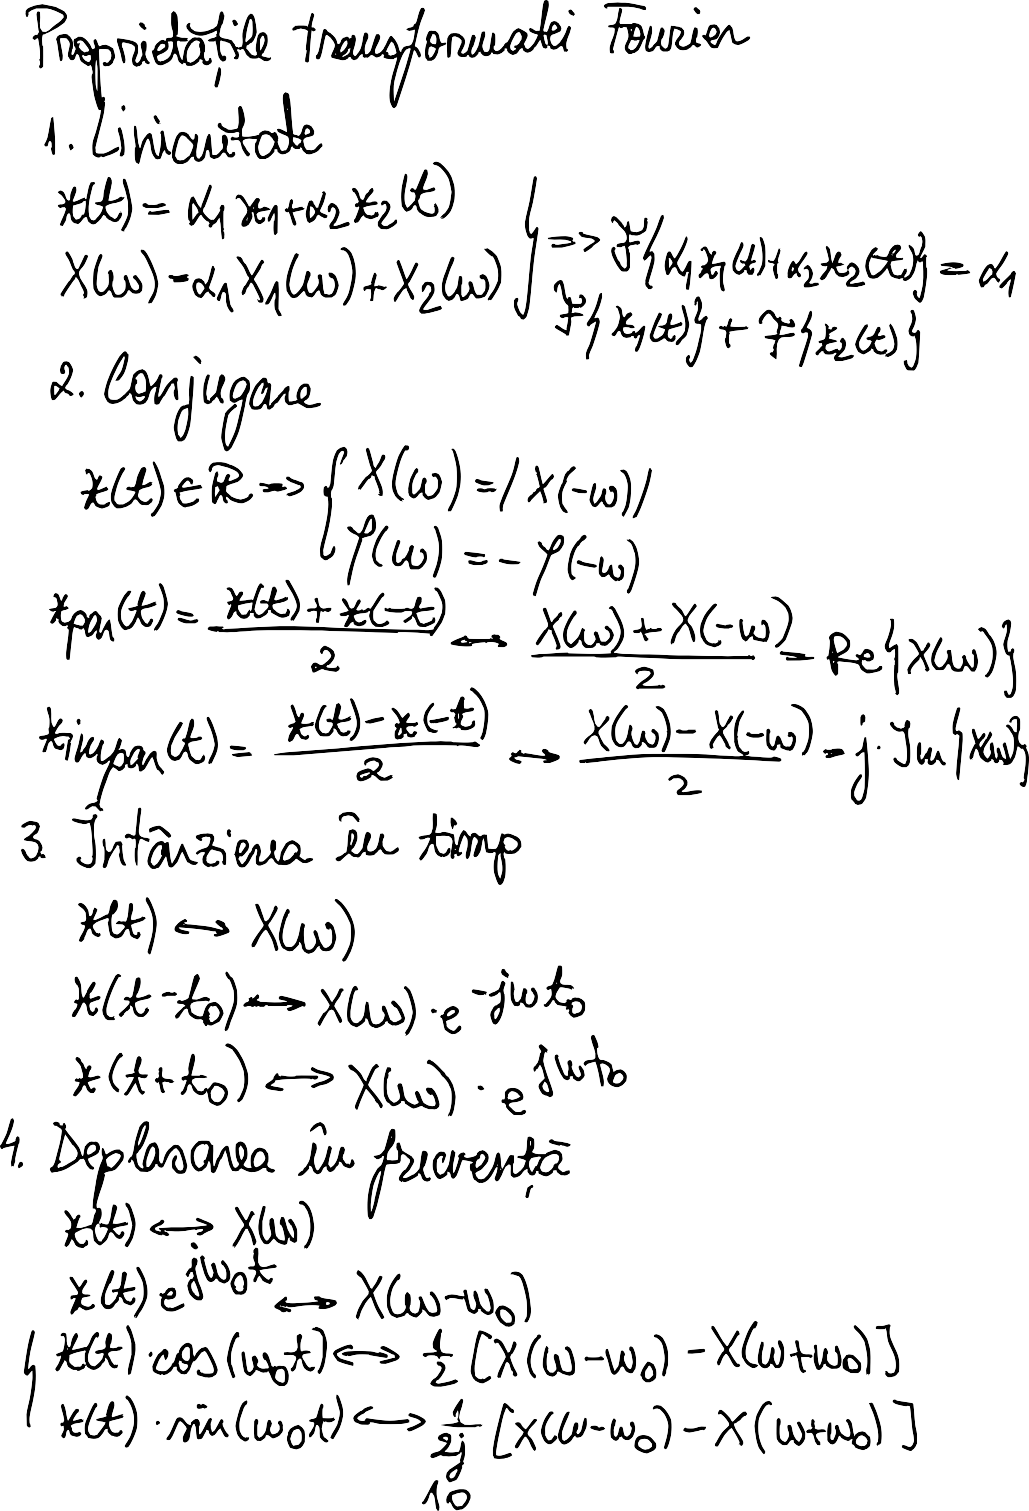 Proprietățile transformatei Fourier
1. Liniaritate
x(t) = α₁ x₁ + α₂ x₂(t)
X(ω) = α₁ X₁(ω) + X₂(ω) } => F{α₁x₁(t) + α₂x₂(t)} = α₁
F{x₁(t)} + F{x₂(t)}
2. Conjugare
x(t) ∈ R => { X(ω) = |X(-ω)|
φ(ω) = - φ(-ω)
x_par(t) = (x(t) + x(-t))/2 ↔ (X(ω) + X(-ω))/2 = Re{X(ω)}
x_impar(t) = (x(t) - x(-t))/2 ↔ (X(ω) - X(-ω))/2 = j · Im{X(ω)}
3. Întârzierea în timp
x(t) ↔ X(ω)
x(t - t₀) ↔ X(ω) · e^(-jωt₀)
x(t + t₀) ↔ X(ω) · e^(jωt₀)
4. Deplasarea în frecvență
x(t) ↔ X(ω)
x(t) e^(jω₀t) ↔ X(ω - ω₀)
{ x(t) · cos(ω₀t) ↔ 1/2 [X(ω - ω₀) - X(ω + ω₀)]
x(t) · sin(ω₀t) ↔ 1/2j [X(ω - ω₀) - X(ω + ω₀)]
10